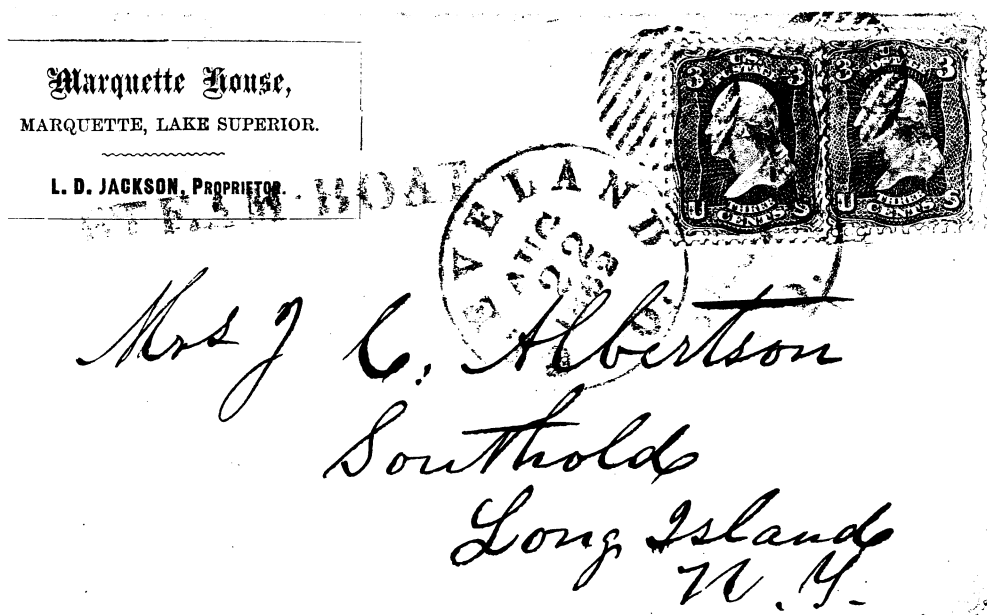 Marquette House,
MARQUETTE, LAKE SUPERIOR.
L. D. JACKSON, PROPRIETOR.
STEAM-BOAT
EVELAND
AUG
22
O.
3 U.S. POSTAGE 3
U THREE CENTS S
3 POSTAGE 3
U THREE CENTS S
Mrs J C. Albertson
Southold
Long Island
N. Y.